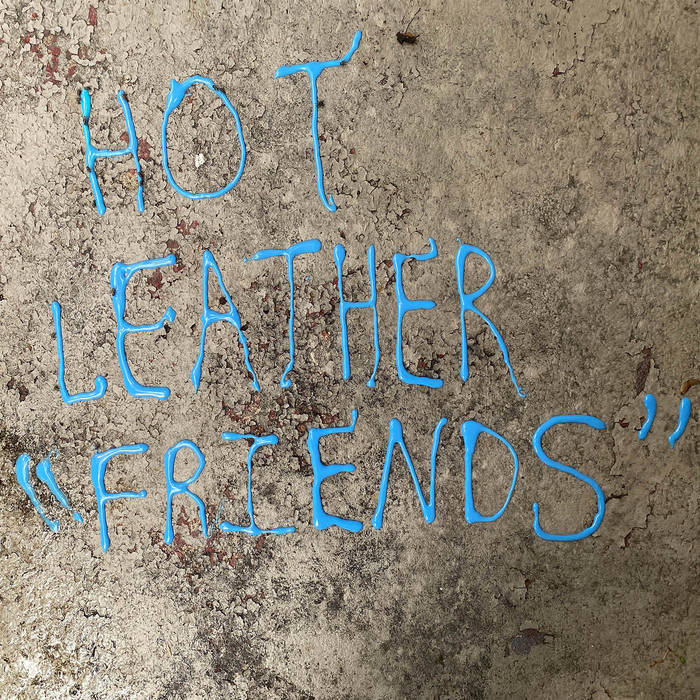 HOT
LEATHER
“FRIENDS”